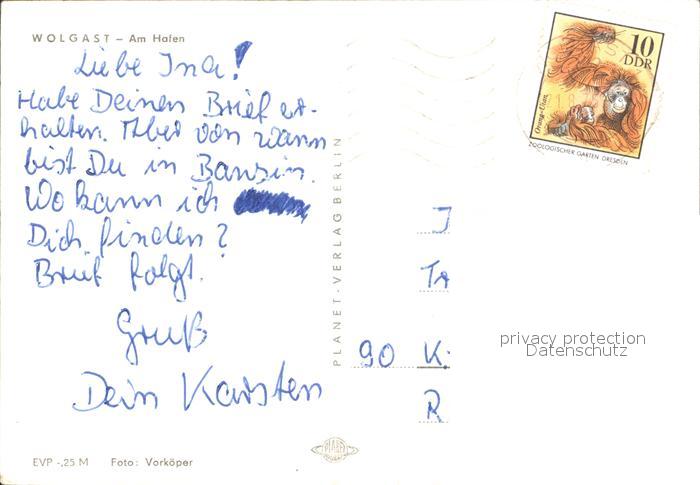 WOLGAST – Am Hafen
Liebe Ina!
Habe Deinen Brief er-
halten. Aber von wann
bist Du in Bansin.
Wo kann ich
Dich finden?
Brief folgt.
Gruß
Dein Karsten
PLANET-VERLAG BERLIN
EVP -,25 M Foto: Vorköper
PLANET
10
DDR
Orang-Utan
ZOOLOGISCHER GARTEN DRESDEN
J
TA
90 K.
R
privacy protection
Datenschutz